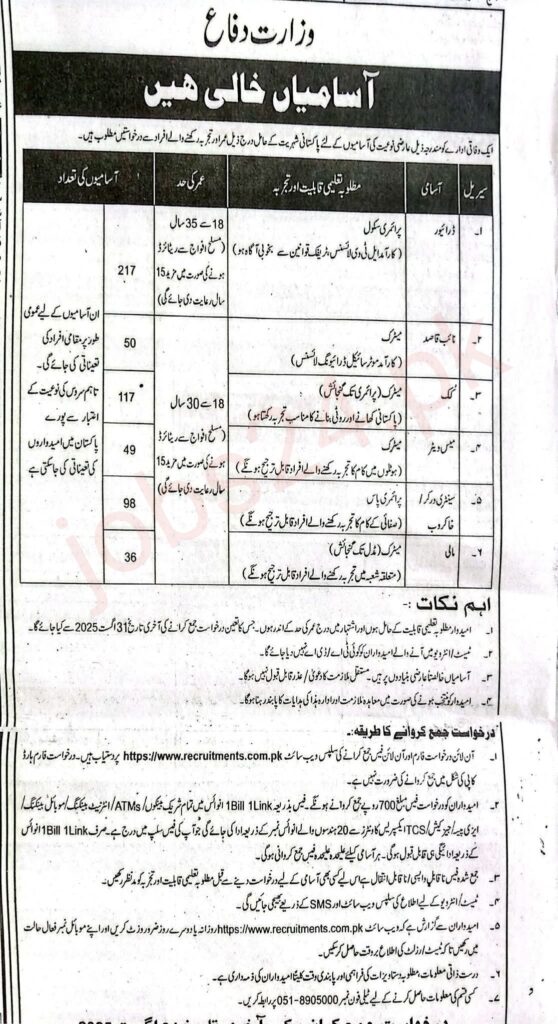 وزارت دفاع
آسامیاں خالی ہیں
ایک وفاقی ادارے کو مندرجہ ذیل عارضی نوعیت کی آسامیوں کے لئے پاکستانی شہریت کے حامل درج ذیل عمر اور تجربہ رکھنے والے افراد سے درخواستیں مطلوب ہیں۔
سیریل آسامی مطلوبہ تعلیمی قابلیت اور تجربہ عمر کی حد آسامیوں کی تعداد
۱۔ ڈرائیور پرائمری سکول
(کارآمد ایل ٹی وی لائسنس، ٹریفک قوانین سے بخوبی آگاہ ہو)
18 سے 35 سال
(مسلح افواج سے ریٹائرڈ
ہونے کی صورت میں مزید 15
سال رعایت دی جائے گی)
217
۲۔ نائب قاصد میٹرک
(کارآمد موٹر سائیکل ڈرائیونگ لائسنس)
50
۳۔ کک میٹرک (پرائمری تک گنجائش)
(پاکستانی کھانے اور روٹی بنانے کا مناسب تجربہ رکھتا ہو)
117
۴۔ میس ویٹر میٹرک
(ہوٹلوں میں کام کا تجربہ رکھنے والے افراد قابل ترجیح ہونگے)
49
۵۔ سینٹری ورکر/
خاکروب
پرائمری پاس
(صفائی کے کام کا تجربہ رکھنے والے افراد قابل ترجیح ہونگے)
98
۶۔ مالی میٹرک (مڈل تک گنجائش)
(متعلقہ شعبہ میں تجربہ رکھنے والے افراد قابل ترجیح ہونگے)
36
18 سے 30 سال
(مسلح افواج سے ریٹائرڈ
ہونے کی صورت میں مزید 15
سال رعایت دی جائے گی)
ان آسامیوں کے لیے عمومی
طور پر مقامی افراد کی
تعیناتی کی جائے گی۔
تاہم سروس کی نوعیت کے
اعتبار سے پورے
پاکستان میں امیدواروں
کی تعیناتی کی جاسکتی ہے
اہم نکات :-
۱۔ امیدوار مطلوبہ تعلیمی قابلیت کے حامل ہوں اور اشتہار میں درج عمر کی حد کے اندر ہوں۔ جس کا تعین درخواست جمع کرانے کی آخری تاریخ 31 اگست 2025 سے کیا جائے گا۔
۲۔ ٹیسٹ / انٹرویو میں آنے والے امیدواران کو کوئی ٹی اے/ ڈی اے نہیں دیا جائے گا۔
۳۔ آسامیاں خالصتاً عارضی بنیادوں پر ہیں۔ مستقل ملازمت کا دعویٰ / عذر قابل قبول نہیں ہوگا۔
۴۔ امیدوار کو منتخب ہونے کی صورت میں معاہدہ ملازمت اور ادارہ ہذا کی ہدایات کا پابند رہنا ہوگا۔
درخواست جمع کروانے کا طریقہ:۔
۱۔ آن لائن درخواست فارم اور آن لائن فیس جمع کرانے کی سلپس ویب سائٹ https://www.recruitments.com.pk پر دستیاب ہیں۔ درخواست فارم ہارڈ
کاپی کی شکل میں جمع کروانے کی ضرورت نہیں ہے۔
۲۔ امیدواران کو درخواست فیس مبلغ 700 روپے جمع کروانے ہونگے۔ فیس بذریعہ 1Bill 1Link انوائس میں تمام شریک بینکوں/ATMs/ انٹرنیٹ بینکنگ/ موبائل بینکنگ/
ایزی پیسہ/ جیز کیش/TCS ایکسپریس کاؤنٹرز سے 20 ہندسوں والے انوائس نمبر کے ذریعہ ادا کی جائے گی جو آپ کی فیس سلپ میں درج ہے۔ صرف 1Bill 1Link انوائس
کے ذریعہ ادائیگی ہی قابل قبول ہوگی۔ ہر آسامی کیلئے علیحدہ علیحدہ فیس جمع کروانی ہوگی۔
۳۔ جمع شدہ فیس ناقابل واپسی/ ناقابل انتقال ہے اس لیے کسی بھی آسامی کے لیے درخواست دینے سے قبل مطلوبہ تعلیمی قابلیت اور تجربہ کو مدنظر رکھیں۔
۴۔ ٹیسٹ/ انٹرویو کے لیے اطلاع کی سلپس ویب سائٹ اور SMS کے ذریعے بھیجی جائیں گی۔
۵۔ امیدواران سے گزارش ہے کہ ویب سائٹ https://www.recruitments.com.pk روزانہ یا دوسرے روز ضرور وزٹ کریں اور اپنے موبائل نمبر فعال حالت
میں رکھیں تاکہ ٹیسٹ/ رزلٹ کی اطلاع بروقت حاصل کرسکیں۔
۶۔ درست ذاتی معلومات، مطلوبہ دستاویزات کی فراہمی اور پابندی وقت کلیتاً امیدواران کی ذمہ داری ہے۔
۷۔ کسی قسم کی معلومات حاصل کرنے کے لیے ٹیلی فون نمبر 051-8905000 پر رابطہ کریں۔
jobs24.pk